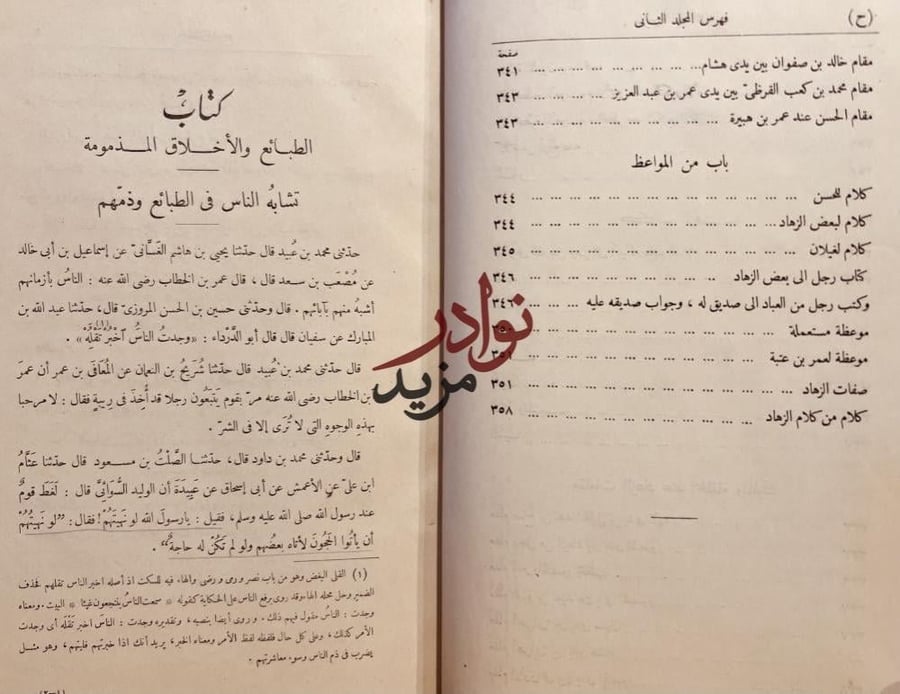 (ح) فهرس المجلد الثانى
صفحة
مقام خالد بن صفوان بين يدى هشام ... ... ... ... ... ... ... ... ٣٤١
مقام محمد بن كعب القرظىّ بين يدى عمر بن عبد العزيز ... ... ... ٣٤٣
مقام الحسن عند عمر بن هبيرة ... ... ... ... ... ... ... ... ٣٤٣
باب من المواعظ
كلام للحسن ... ... ... ... ... ... ... ... ... ... ... ٣٤٤
كلام لبعض الزهاد ... ... ... ... ... ... ... ... ... ... ٣٤٤
كلام لغيلان ... ... ... ... ... ... ... ... ... ... ... ٣٤٥
كتاب رجل الى بعض الزهاد ... ... ... ... ... ... ... ٣٤٦
وكتب رجل من العباد الى صديق له ، وجواب صديقه عليه ... ... ... ٣٤٦
موعظة مستعملة ... ... ... ... ... ... ... ...
موعظة لعمر بن عتبة ... ... ... ... ... ... ... ٣٥١
صفات الزهاد ... ... ... ... ... ... ... ... ... ... ٣٥١
كلام من كلام الزهاد ... ... ... ... ... ... ... ... ... ٣٥٨
نوادر
مزيد
كتاب
الطبائع والأخلاق المذمومة
تشابهُ الناس فى الطبائع وذمّهم
حدّثنى محمد بن عُبيد قال حدّثنا يحيى بن هاشم الغسَّانىّ عن إسماعيل بن أبى خالد
عن مُصْعَب بن سعد قال ، قال عمر بن الخطاب رضى الله عنه : الناسُ بأزمانهم
أشبهُ منهم بآبائهم . قال وحدّثنى حسين بن الحسن المروزىّ قال، حدّثنا عبد الله بن
المبارك عن سفيان قال قال أبو الدَّرداء : «وجدتُ الناسُ اخْبُرْ تَقْلَهْ(١)» .
قال حدّثنى محمد بن عُبيد قال حدّثنا شُرَيح بن النعمان عن المُعَافَى بن عمر أن عمرَ
بن الخطاب رضى الله عنه مرّ بقوم يَتبَعُون رجلا قد أُخذ فى رِيبةٍ فقال : لا مرحبا
بهذهِ الوجوهِ التى لا تُرَى إلا فى الشرّ .
قال وحدّثنى محمد بن داود قال، حدّثنا الصَّلْتُ بن مسعود قال حدّثنا عَثَّامُ
ابن علىّ عن الأعمش عن أبى إسحاق عن عَبِيدَةَ أن الوليد السُّوَائىَّ قال : لَغَطَ قومٌ
عند رسول الله صلى الله عليه وسلم، فقيل : يارسول الله لو نَهيتَهُم! فقال : ”لو نَهيْتُهُمْ
أن يأتُوا الحَجُونَ لأتاه بعضُهم ولو لم تكُنْ له حاجةٌ“ .
(١) القلى البغض وهو من باب نصر ورمى ورضى والهاء فيه للسكت اذ أصله اخبر الناس تقلهم فحذف
الضمير وحل محله الهاء وقد روى برفع الناس على الحكاية كقوله * سمعت الناسُ ينتجعون غيثا * البيت . ومعناه
وجدت : الناسُ مقول فيهم ذلك . وروى أيضا بنصبه ، وتقديره وجدت : الناسَ اخبر تَقْلَه أى وجدت
الأمر كذلك ، وعلى كل حال فلفظه لفظ الأمر ومعناه الخبر، يريد أنك اذا خبرتهم قليتهم ، وهو مثـل
يضرب فى ذم الناس وسوء معاشرتهم .